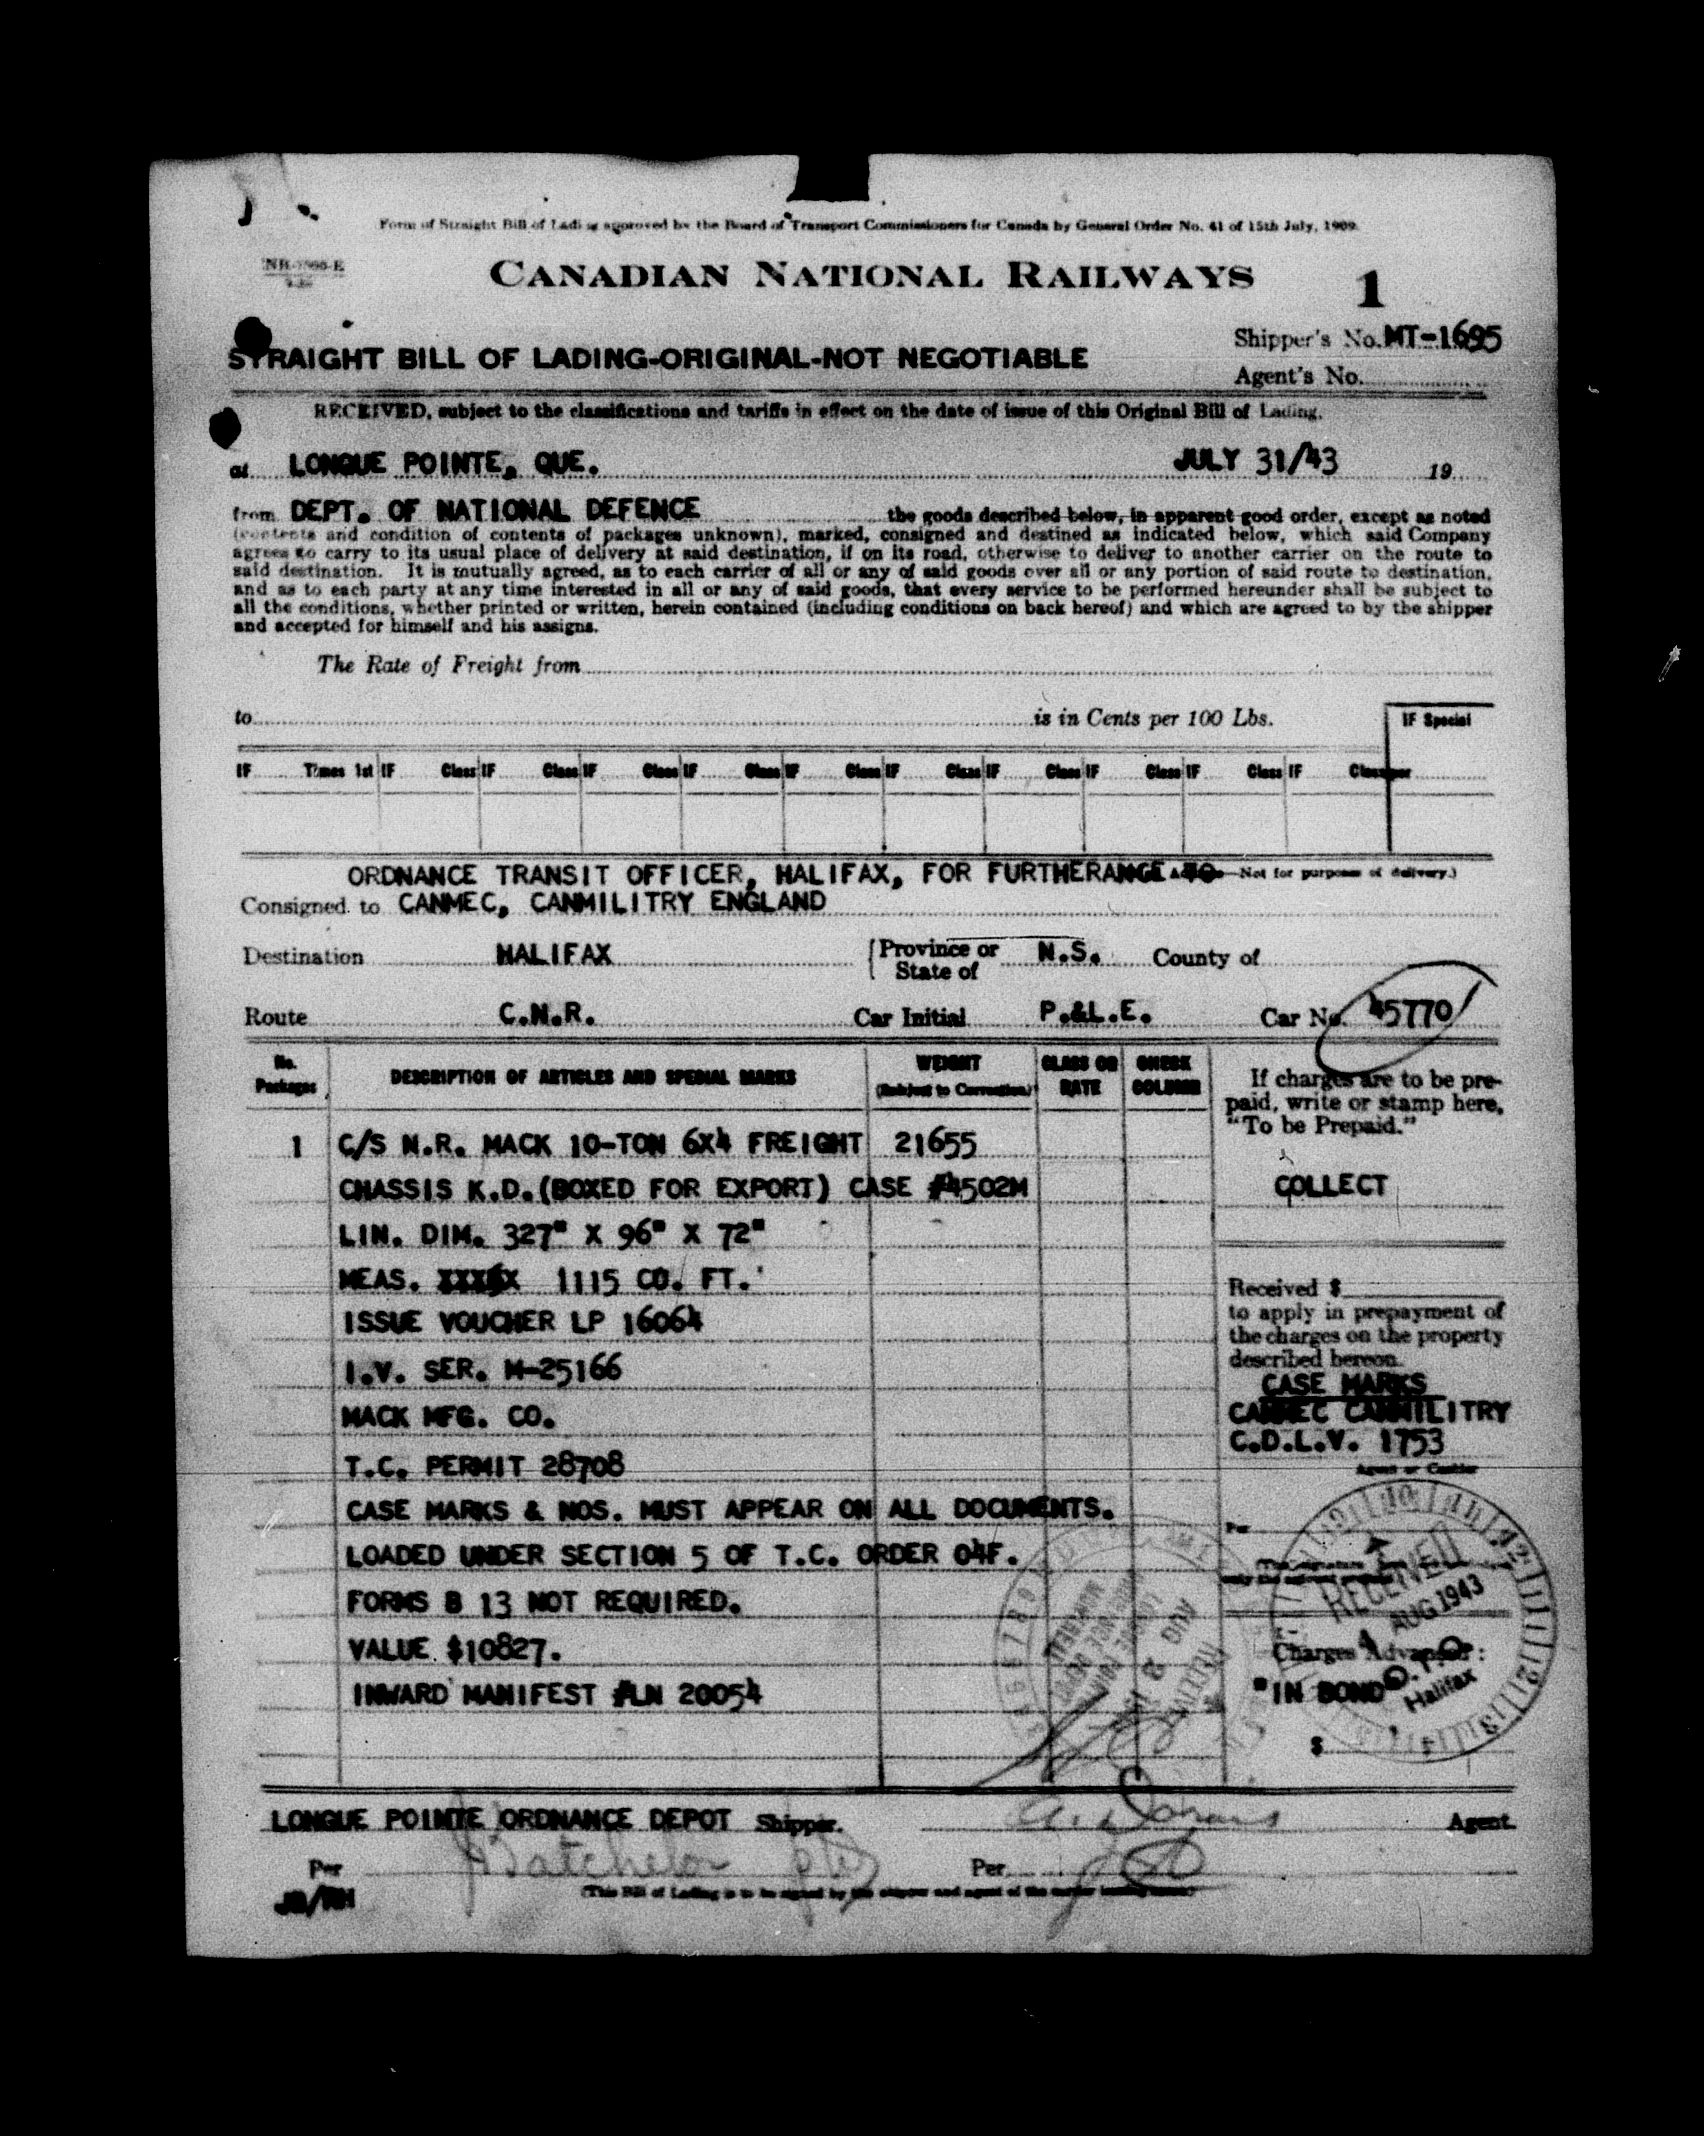 Form of Straight Bill of Lading approved by the Board of Transport Commissioners for Canada by General Order No. 41 of 15th July, 1909.
CANADIAN NATIONAL RAILWAYS
1
Shipper's No. MT-1695
STRAIGHT BILL OF LADING-ORIGINAL-NOT NEGOTIABLE
Agent's No.
RECEIVED, subject to the classifications and tariffs in effect on the date of issue of this Original Bill of Lading,
at LONGUE POINTE, QUE. JULY 31/43 19
from DEPT. OF NATIONAL DEFENCE the goods described below, in apparent good order, except as noted
(contents and condition of contents of packages unknown), marked, consigned and destined as indicated below, which said Company
agrees to carry to its usual place of delivery at said destination, if on its road, otherwise to deliver to another carrier on the route to
said destination. It is mutually agreed, as to each carrier of all or any of said goods over all or any portion of said route to destination,
and as to each party at any time interested in all or any of said goods, that every service to be performed hereunder shall be subject to
all the conditions, whether printed or written, herein contained (including conditions on back hereof) and which are agreed to by the shipper
and accepted for himself and his assigns.
The Rate of Freight from
to is in Cents per 100 Lbs.
IF Special
IF Times 1st IF Class IF Class IF Class IF Class IF Class IF Class IF Class IF Class IF Class IF Class per
ORDNANCE TRANSIT OFFICER, HALIFAX, FOR FURTHERANCE TO —Not for purposes of delivery.)
Consigned to CANMEC, CANMILITRY ENGLAND
Destination HALIFAX Province or State of N.S. County of
Route C.N.R. Car Initial P.&L.E. Car No. 45770
No. Packages DESCRIPTION OF ARTICLES AND SPECIAL MARKS WEIGHT (Subject to Correction) CLASS OR RATE CHECK COLUMN
If charges are to be pre-
paid, write or stamp here,
"To be Prepaid."
1 C/S N.R. MACK 10-TON 6X4 FREIGHT 21655
CHASSIS K.D.(BOXED FOR EXPORT) CASE #4502M
COLLECT
LIN. DIM. 327" X 96" X 72"
MEAS. 1115 CU. FT.
ISSUE VOUCHER LP 16064
I.V. SER. M-25166
MACK MFG. CO.
T.C. PERMIT 28708
CASE MARKS & NOS. MUST APPEAR ON ALL DOCUMENTS.
LOADED UNDER SECTION 5 OF T.C. ORDER 04F.
FORMS B 13 NOT REQUIRED.
VALUE $10827.
INWARD MANIFEST #LN 20054
Received $
to apply in prepayment of
the charges on the property
described hereon.
CASE MARKS
CANMEC CANMILITRY
C.D.L.V. 1753
Agent or Cashier
Per
RECEIVED
AUG 1943
Halifax
Charges Advanced:
"IN BOND"
$
RECEIVED
AUG 3
LONGUE POINTE ORDNANCE DEPOT Shipper. Agent.
Per Batchelor Per
JB/RH
(This Bill of Lading is to be signed by the shipper and agent of the carrier issuing same.)